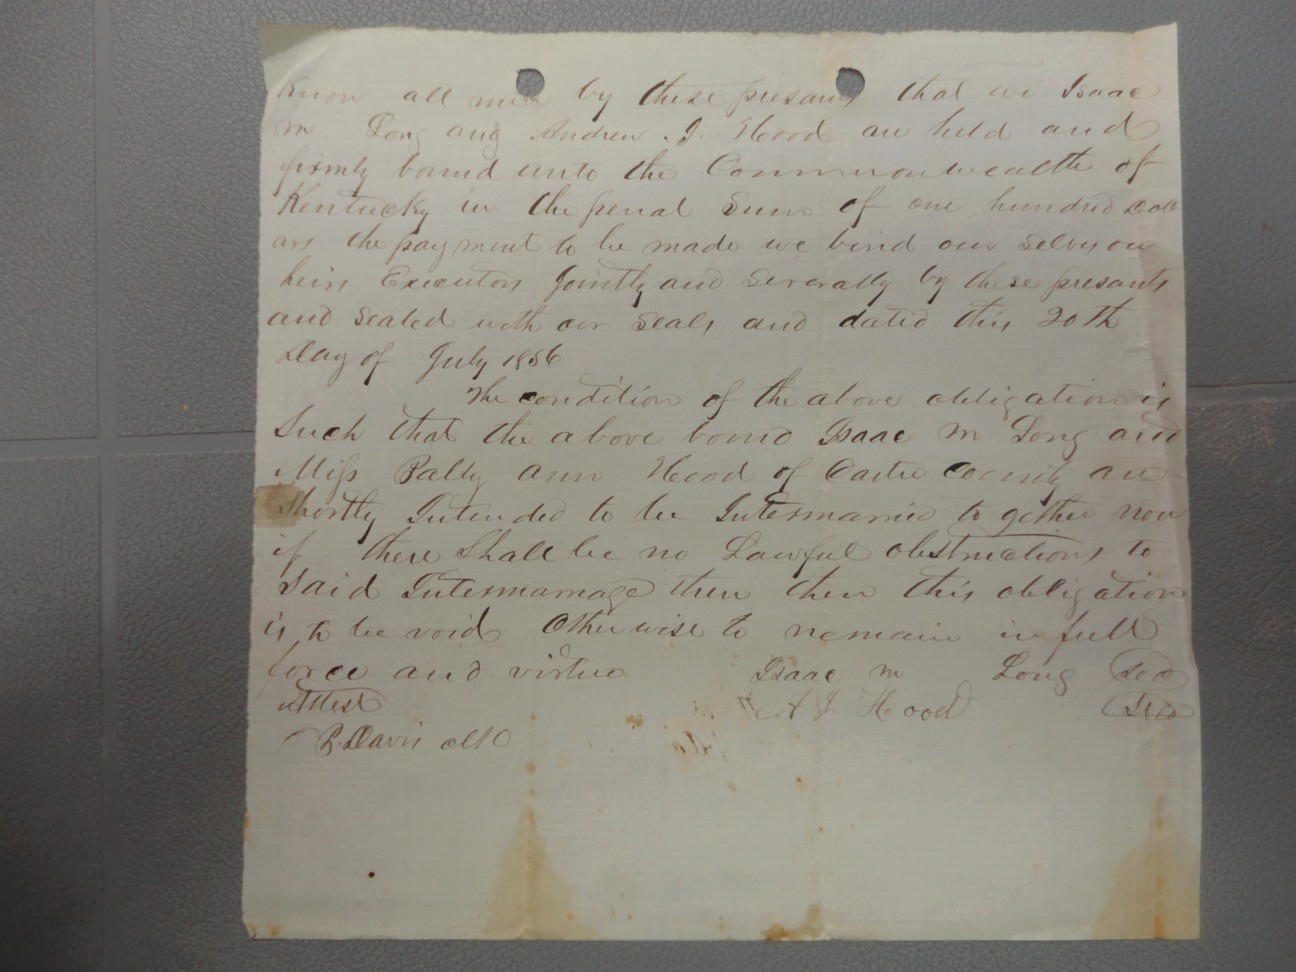 Know all men by these presants that we Isaac
M Long and Andrew . J. Hood are held and
firmly bound unto the Commonwealth of
Kentucky in the penal Sum of one hundred Doll
ars the payment to be made we bind our selves our
heirs Executors Jointly and Severally by these presants
and Sealed with our Seals and dated this 20th
Day of July 1856
The condition of the above obligation is
Such that the above bound Isaac M Long and
Miss Patty Ann Hood of Carter County are
Shortly Intended to be Intermarried to gether now
if there Shall be no Lawful obstructions to
Said Intermarriage then then this obligation
is to be void Otherwise to remain in full
force and virtue Isaac M Long Sea
Attest A J Hood Sea
Davis clk